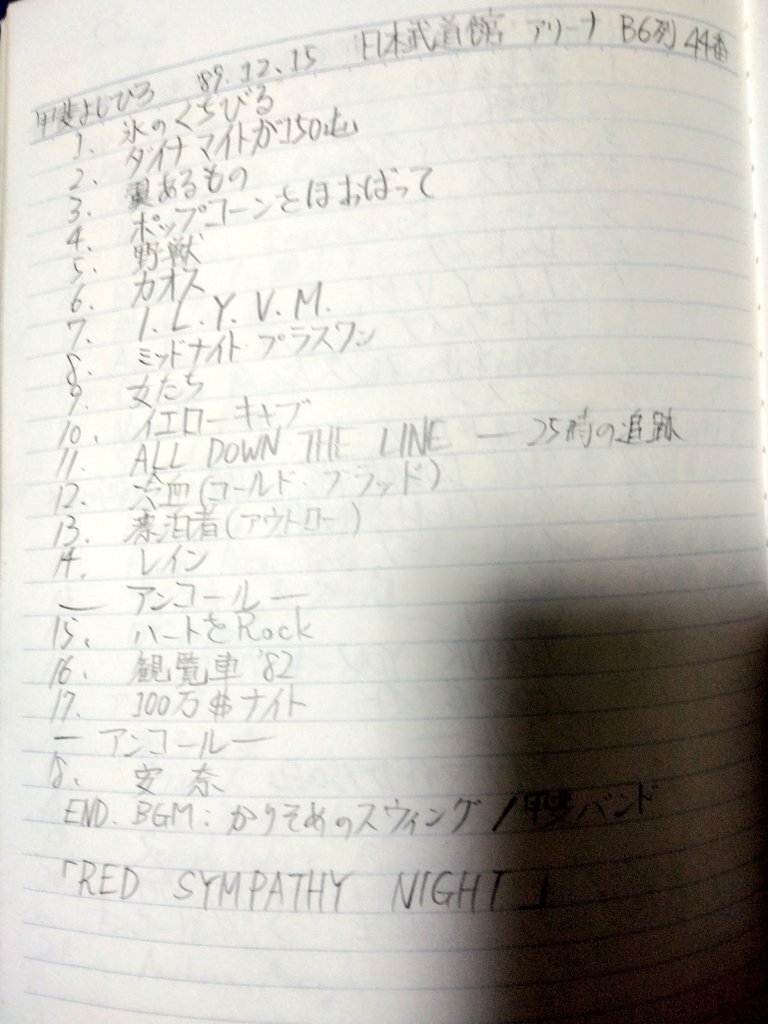 甲斐よしひろ '89.12.15 日本武道館 アリーナ B6列 44番
1. 氷のくちびる
2. ダイナマイトが150屯
3. 翼あるもの
4. ポップコーンをほおばって
5. 野獣
6. カオス
7. I.L.Y.V.M.
8. ミッドナイト・プラスワン
9. 女たち
10. イエローキャブ
11. ALL DOWN THE LINE ― 25時の追跡
12. 冷血(コールド・ブラッド)
13. 漂泊者(アウトロー)
14. レイン
― アンコール ―
15. ハートをRock
16. 観覧車'82
17. 100万$ナイト
― アンコール ―
18. 安奈
END. BGM:かりそめのスウィング/甲斐バンド
「RED SYMPATHY NIGHT」